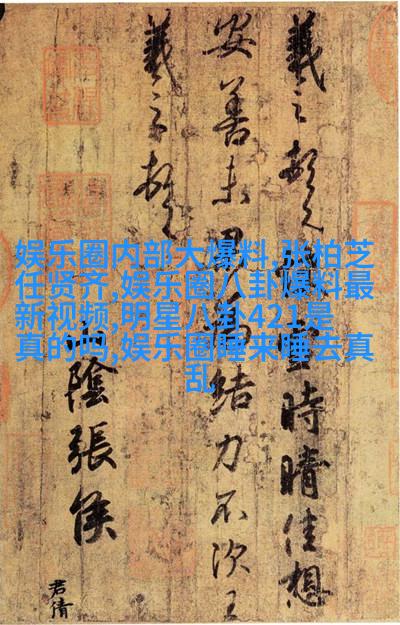 娱乐圈内部大爆料,张柏芝
任贤齐,娱乐圈八卦爆料最
新视频,明星八卦421是
真的吗,娱乐圈睡来睡去真
乱
羲之頓首雪時晴佳想
安善未果為結力不次王
羲之頓首
山陰張侯
君倩